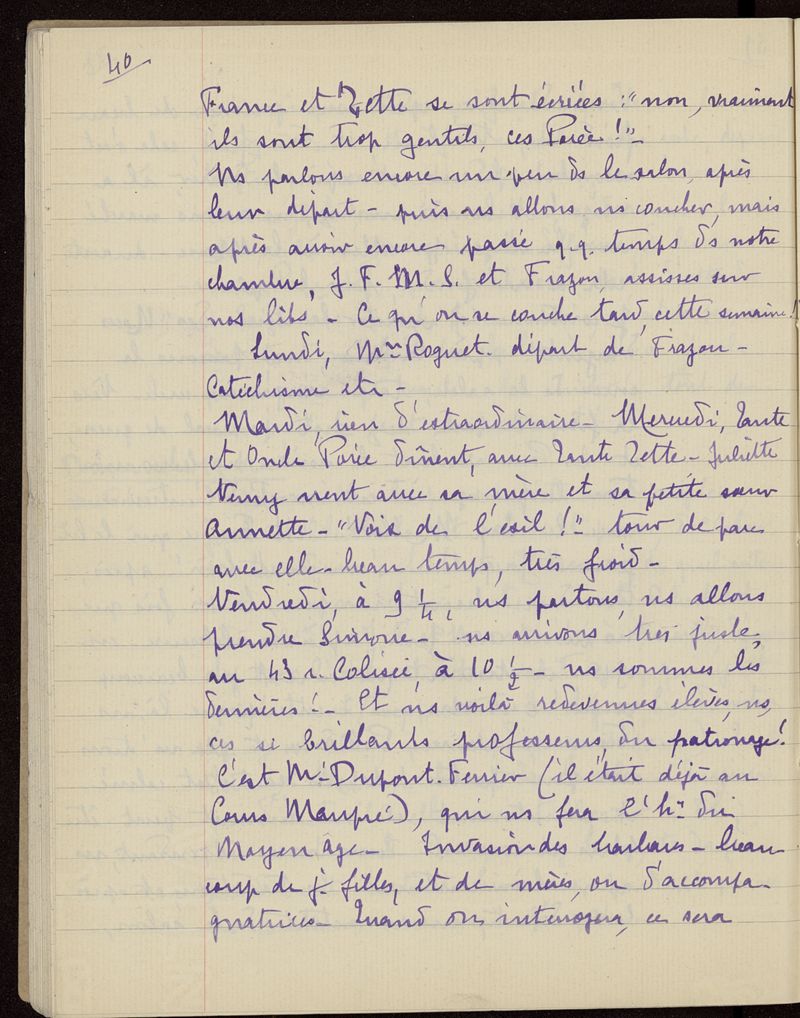 40
France et Zette se sont écriées : "non, vraiment
ils sont trop gentils, ces Porée !"
Ns parlons encore un peu ds le salon, après
leur départ - puis ns allons ns coucher, mais
après avoir encore passé q.q. temps ds notre
chambre, J. F. M. S. et Frazon, assises sur
nos lits - Ce qu'on se couche tard, cette semaine !
Lundi, Mme Roguet. départ de Frazon -
Catéchisme etc -
Mardi, rien d'extraordinaire - Mercredi, Tante
et Oncle Porée dînent, avec Tante Zette - Juliette
vient avec sa mère et sa petite sœur
Annette - "Voix de l'exil !" tour de parc
avec elle - beau temps, très froid -
Vendredi, à 9 1/4, ns partons, ns allons
prendre Simone - ns arrivons très juste,
au 43 r. Colisée, à 10 1/2 - ns sommes les
dernières ! - Et ns voilà redevenues élèves, ns,
ces si brillants professeurs du patronage !
C'est Mr Dupont-Ferrier (il était déjà au
Cours Maupré), qui ns fera l'hre du
Moyen âge - Invasion des barbares - beau-
coup de j. filles, et de mères, ou d'accompa-
gnatrices - Quand on interrogera, ce sera